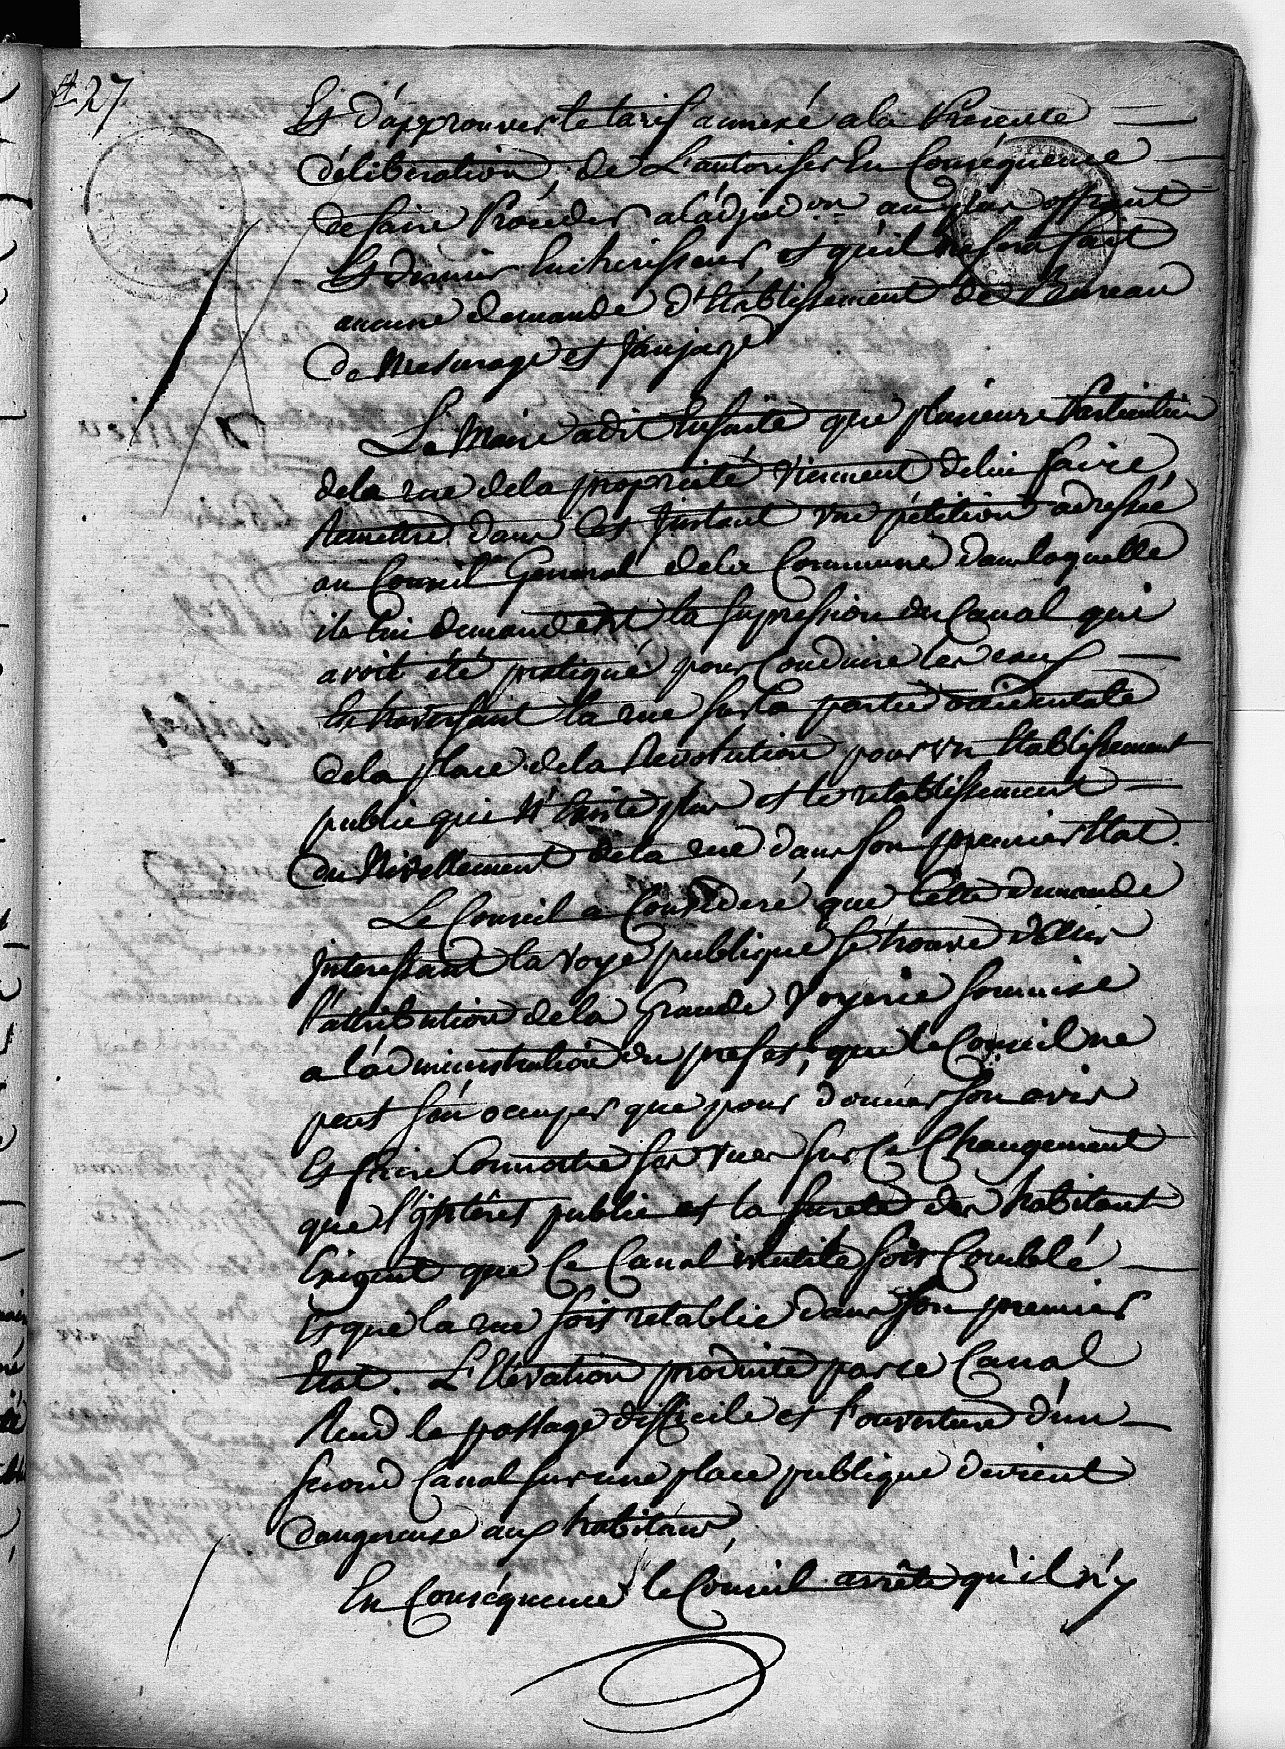 fº 27
Et d'approuver le tarif annexé a la Presente
délibération, de L'autoriser En Conséquence
de faire Proceder a ládjudon au plus offrant
Et dernier Encherisseur, et quil ne sera fait
aucune demande d'Etablissement de Bureau
de Mesurage et Jaujage
Le Maire a dit Ensuite que plusieurs Particuliers
de la rue de la propriété viennent de lui faire
Remettre dans cet Instant une pétition adressée
au Conseil General de la Commune dans laquelle
ils lui demandent la supression du Canal qui
avoit été pratiqué pour Conduire les eaux
En traversant la rue sur la partie occidentale
de la place de la Revolution pour un Etablissement
public qui N'Existe plus et le retablissement
du Nivellement de la rue dans son premier Etat.
Le Conseil a Consideré que Cette demande
Interessant la voye publique se trouve dans
l'attribution de la Grande Voyerie soumise
a l'administration du prefet, que le Conseil ne
peut s'en occuper que pour donner son avis
Et faire Connoitre ses vues sur Ce Changement
que l'Intérêt public et la sureté des habitants
Exigent que Ce Canal inutile soit Comblé
Et que la rue soit retablie dans son premier
Etat. L'Elévation produite par ce Canal
Rend le passage difficile et l'ouverture d'un
second Canal sur une place publique devient
dangereuse aux habitans,
En Conséquence le Conseil arrête qu'il n'y